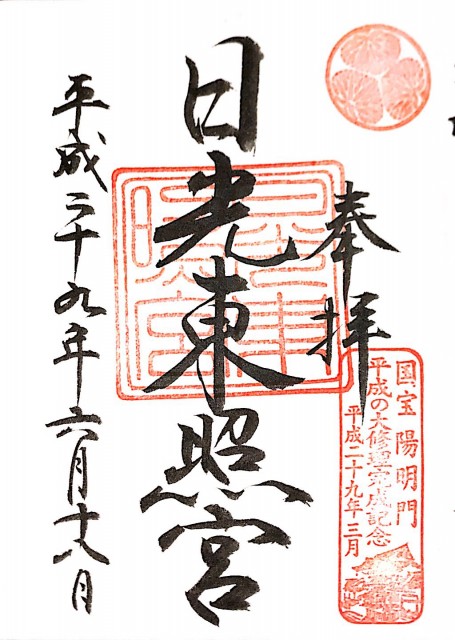 奉拝
国宝 陽明門
平成の大修理完成記念
平成二十九年三月
日光東照宮
平成二十九年六月十八日